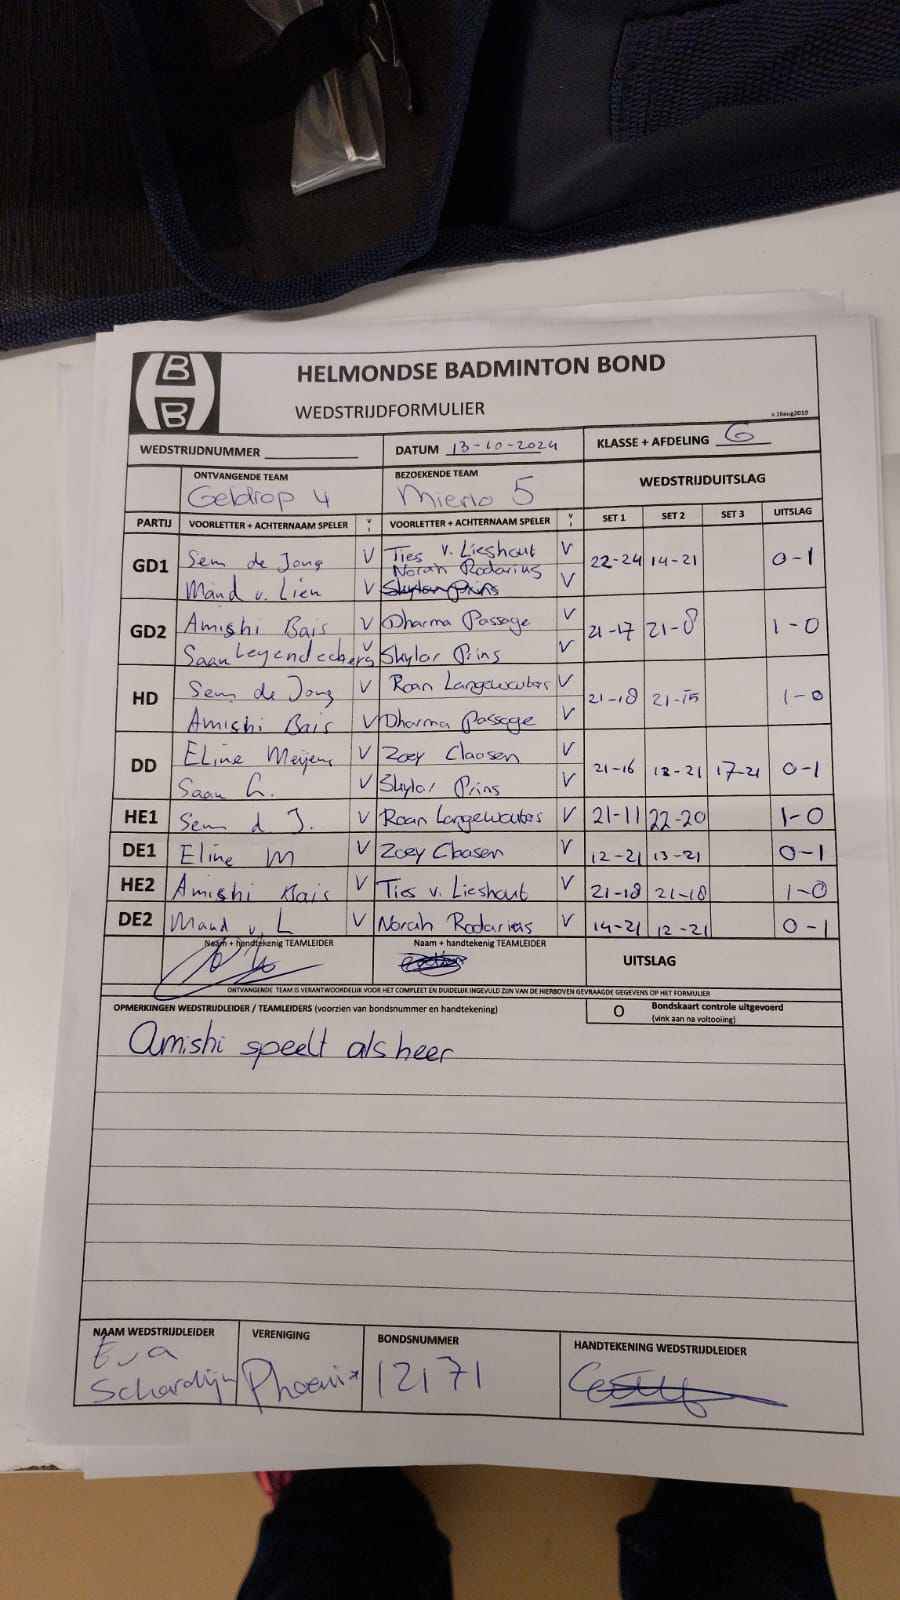 HELMONDSE BADMINTON BOND
WEDSTRIJDFORMULIER
v.16aug2019
WEDSTRIJDNUMMER DATUM 13-10-2024 KLASSE + AFDELING 6
ONTVANGENDE TEAM BEZOEKENDE TEAM WEDSTRIJDUITSLAG
Geldrop 4 Mierlo 5
PARTIJ VOORLETTER + ACHTERNAAM SPELER V VOORLETTER + ACHTERNAAM SPELER V SET 1 SET 2 SET 3 UITSLAG
GD1 Sem de Jong V Ties v. Lieshout V 22-24 14-21 0-1
Norah Rodarius
Maud v. Lien V Skylar Prins V
GD2 Amishi Bais V Dharma Passage V 21-17 21-8 1-0
Saar Leyendeckers V Skylar Prins V
HD Sem de Jong V Roan Langewouters V 21-18 21-15 1-0
Amishi Bais V Dharma Passage V
DD Eline Meijens V Zoey Claasen V 21-16 18-21 17-21 0-1
Saar L. V Skylar Prins V
HE1 Sem d J. V Roan Langewouters V 21-11 22-20 1-0
DE1 Eline M V Zoey Claasen V 12-21 13-21 0-1
HE2 Amishi Bais V Ties v. Lieshout V 21-18 21-18 1-0
DE2 Maud v. L V Norah Rodarius V 14-21 12-21 0-1
Naam + handtekenig TEAMLEIDER Naam + handtekenig TEAMLEIDER UITSLAG
ONTVANGENDE TEAM IS VERANTWOORDELIJK VOOR HET COMPLEET EN DUIDELIJK INGEVULD ZIJN VAN DE HIERBOVEN GEVRAAGDE GEGEVENS OP HET FORMULIER
OPMERKINGEN WEDSTRIJDLEIDER / TEAMLEIDERS (voorzien van bondsnummer en handtekening) O Bondskaart controle uitgevoerd
(vink aan na voltooiing)
Amishi speelt als heer
NAAM WEDSTRIJDLEIDER VERENIGING BONDSNUMMER HANDTEKENING WEDSTRIJDLEIDER
Eva
Schardijn Phoenix 12171